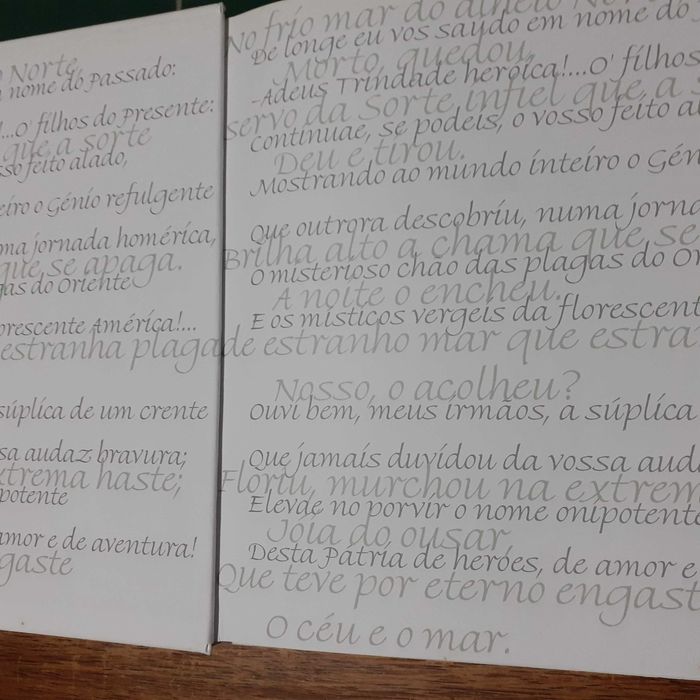 o Norte,
m nome do Passado:
!...O' filhos do Presente:
que a sorte
sso feito alado,
eiro o Génio refulgente
ma jornada homérica,
que se apaga.
gas do Oriente
orescente América!...
estranha plaga
súplica de um crente
sa audaz bravura;
xtrema haste;
potente
amor e de aventura!
gaste
No frio mar do alheio No
De longe eu vos saúdo em nome do
Morto, quedou,
-Adeus Trindade heróica!...O' filhos
servo da Sorte infiel que a s
Continuae, se podeis, o vosso feito al
Deu e tirou.
Mostrando ao mundo inteiro o Géni
Que outrora descobriu, numa jorna
Brilha alto a chama que se
O misterioso chão das plagas do Ori
A noite o encheu.
E os místicos vergeis da florescent
de estranho mar que estra
Nosso, o acolheu?
Ouvi bem, meus irmãos, a súplica
Que jamais duvidou da vossa auda
Floriu, murchou na extrem
Elevae no porvir o nome onipotente
Jóia do ousar,
Desta Pátria de heróes, de amor e
Que teve por eterno engast
O céu e o mar.